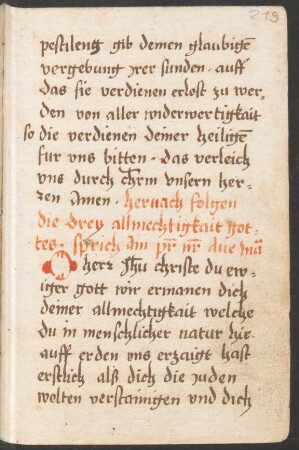 219
pestilentz gib deinen glaubigē
vergebung yrer sunden · auff
das sie verdienen erlost zu wer,
den von aller widerwertigkait
so die verdienen deiner heiligē
fur vns bitten · das verleich
vns durch chrm̄ vnsern her,
ren Amen · hernach folgen
die drey allmechtigkait got,
tes · sprich ain pr̄ nr̄ Aue mā
O herr Jhū christe du ew,
iger gott wir ermanen dich
deiner allmechtigkait welche
du in menschlicher natur hie,
auff erden vns erzaigt hast
erstlich alß dich die juden
wolten verstainigen vnd dich